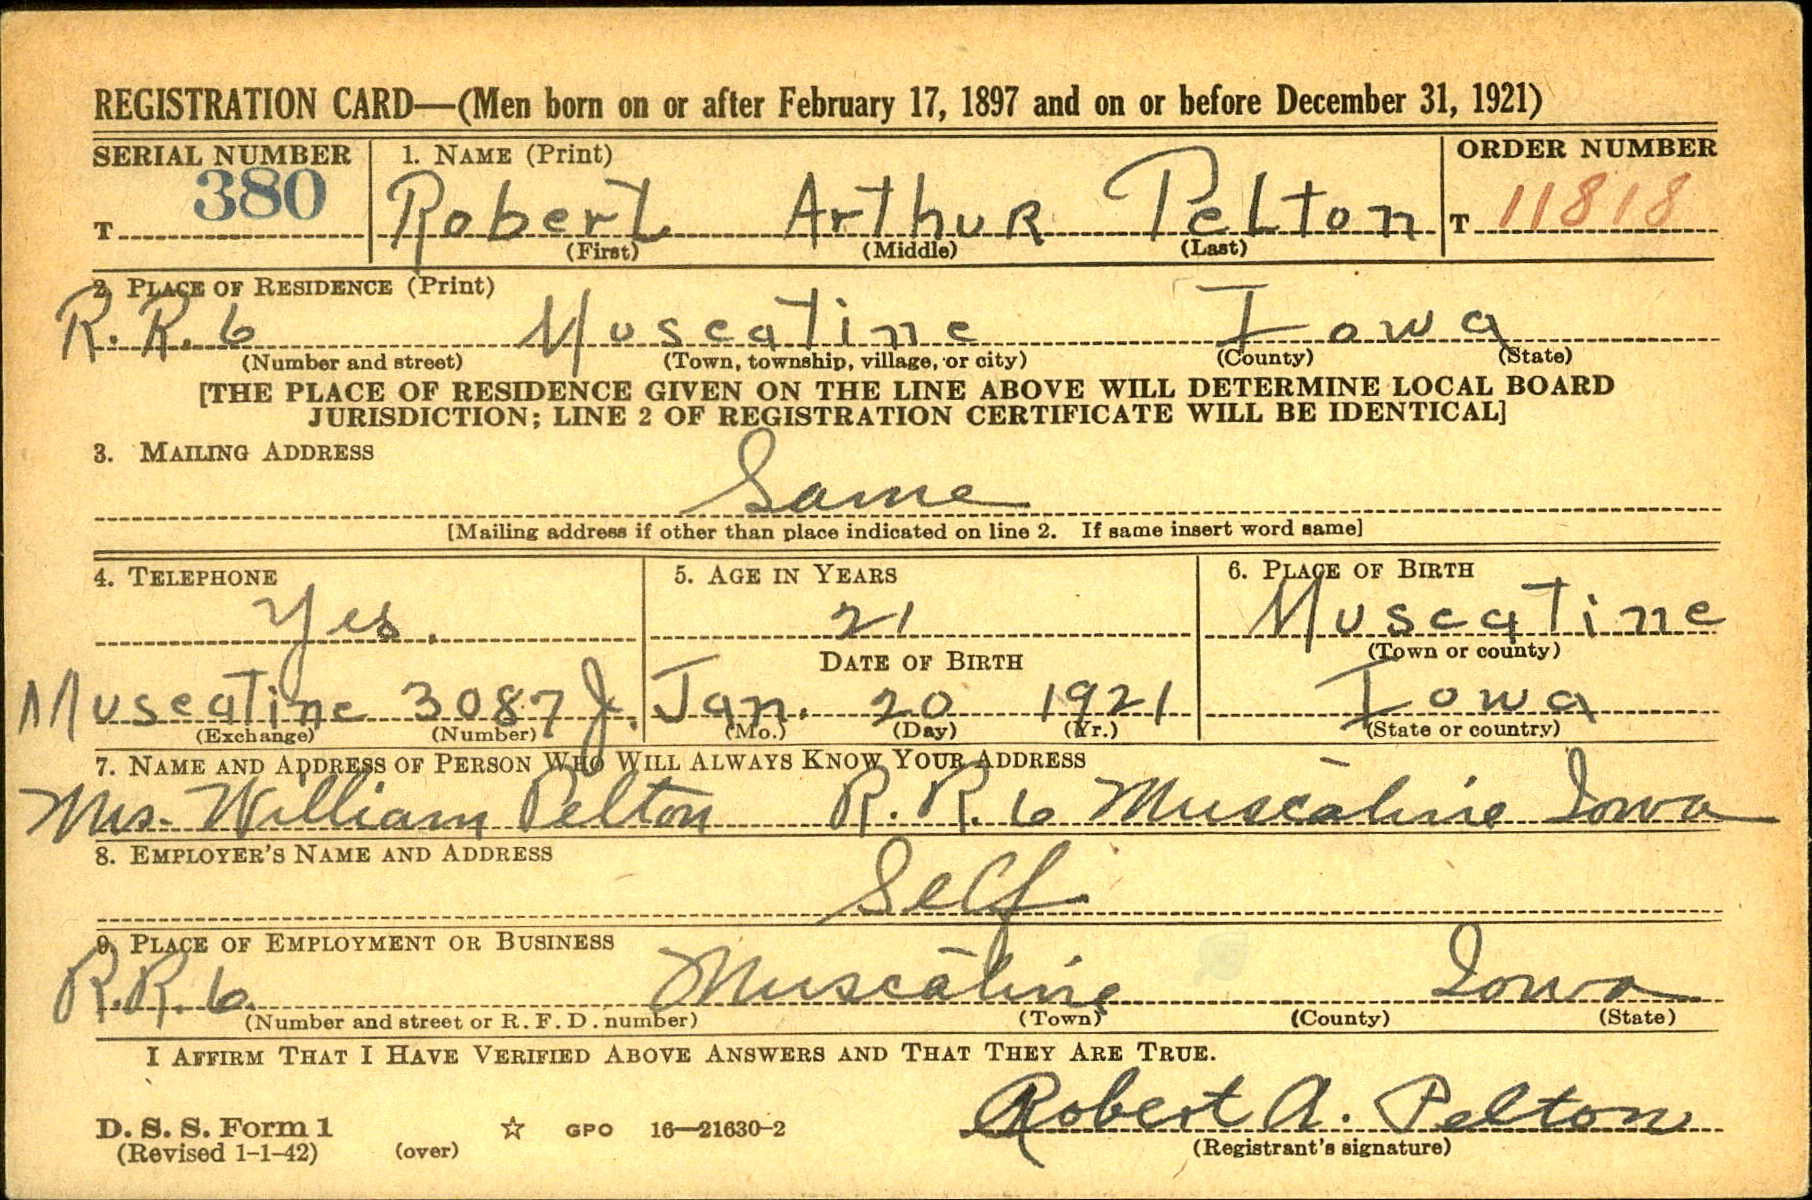 REGISTRATION CARD—(Men born on or after February 17, 1897 and on or before December 31, 1921)
SERIAL NUMBER 1. NAME (Print) ORDER NUMBER
T 380 Robert Arthur Pelton T 11818
(First) (Middle) (Last)
2. PLACE OF RESIDENCE (Print)
R. R. 6 Muscatine Iowa
(Number and street) (Town, township, village, or city) (County) (State)
[THE PLACE OF RESIDENCE GIVEN ON THE LINE ABOVE WILL DETERMINE LOCAL BOARD
JURISDICTION; LINE 2 OF REGISTRATION CERTIFICATE WILL BE IDENTICAL]
3. MAILING ADDRESS
Same
[Mailing address if other than place indicated on line 2. If same insert word same]
4. TELEPHONE 5. AGE IN YEARS 6. PLACE OF BIRTH
Yes. 21 Muscatine
DATE OF BIRTH (Town or county)
Muscatine 3087 J. Jan. 20 1921 Iowa
(Exchange) (Number) (Mo.) (Day) (Yr.) (State or country)
7. NAME AND ADDRESS OF PERSON WHO WILL ALWAYS KNOW YOUR ADDRESS
Mrs. William Pelton R. R. 6 Muscatine Iowa
8. EMPLOYER'S NAME AND ADDRESS
Self
9. PLACE OF EMPLOYMENT OR BUSINESS
R. R. 6. Muscatine Iowa
(Number and street or R. F. D. number) (Town) (County) (State)
I AFFIRM THAT I HAVE VERIFIED ABOVE ANSWERS AND THAT THEY ARE TRUE.
Robert A. Pelton
D. S. S. Form 1 ☆ GPO 16—21630-2
(Revised 1-1-42) (over) (Registrant's signature)